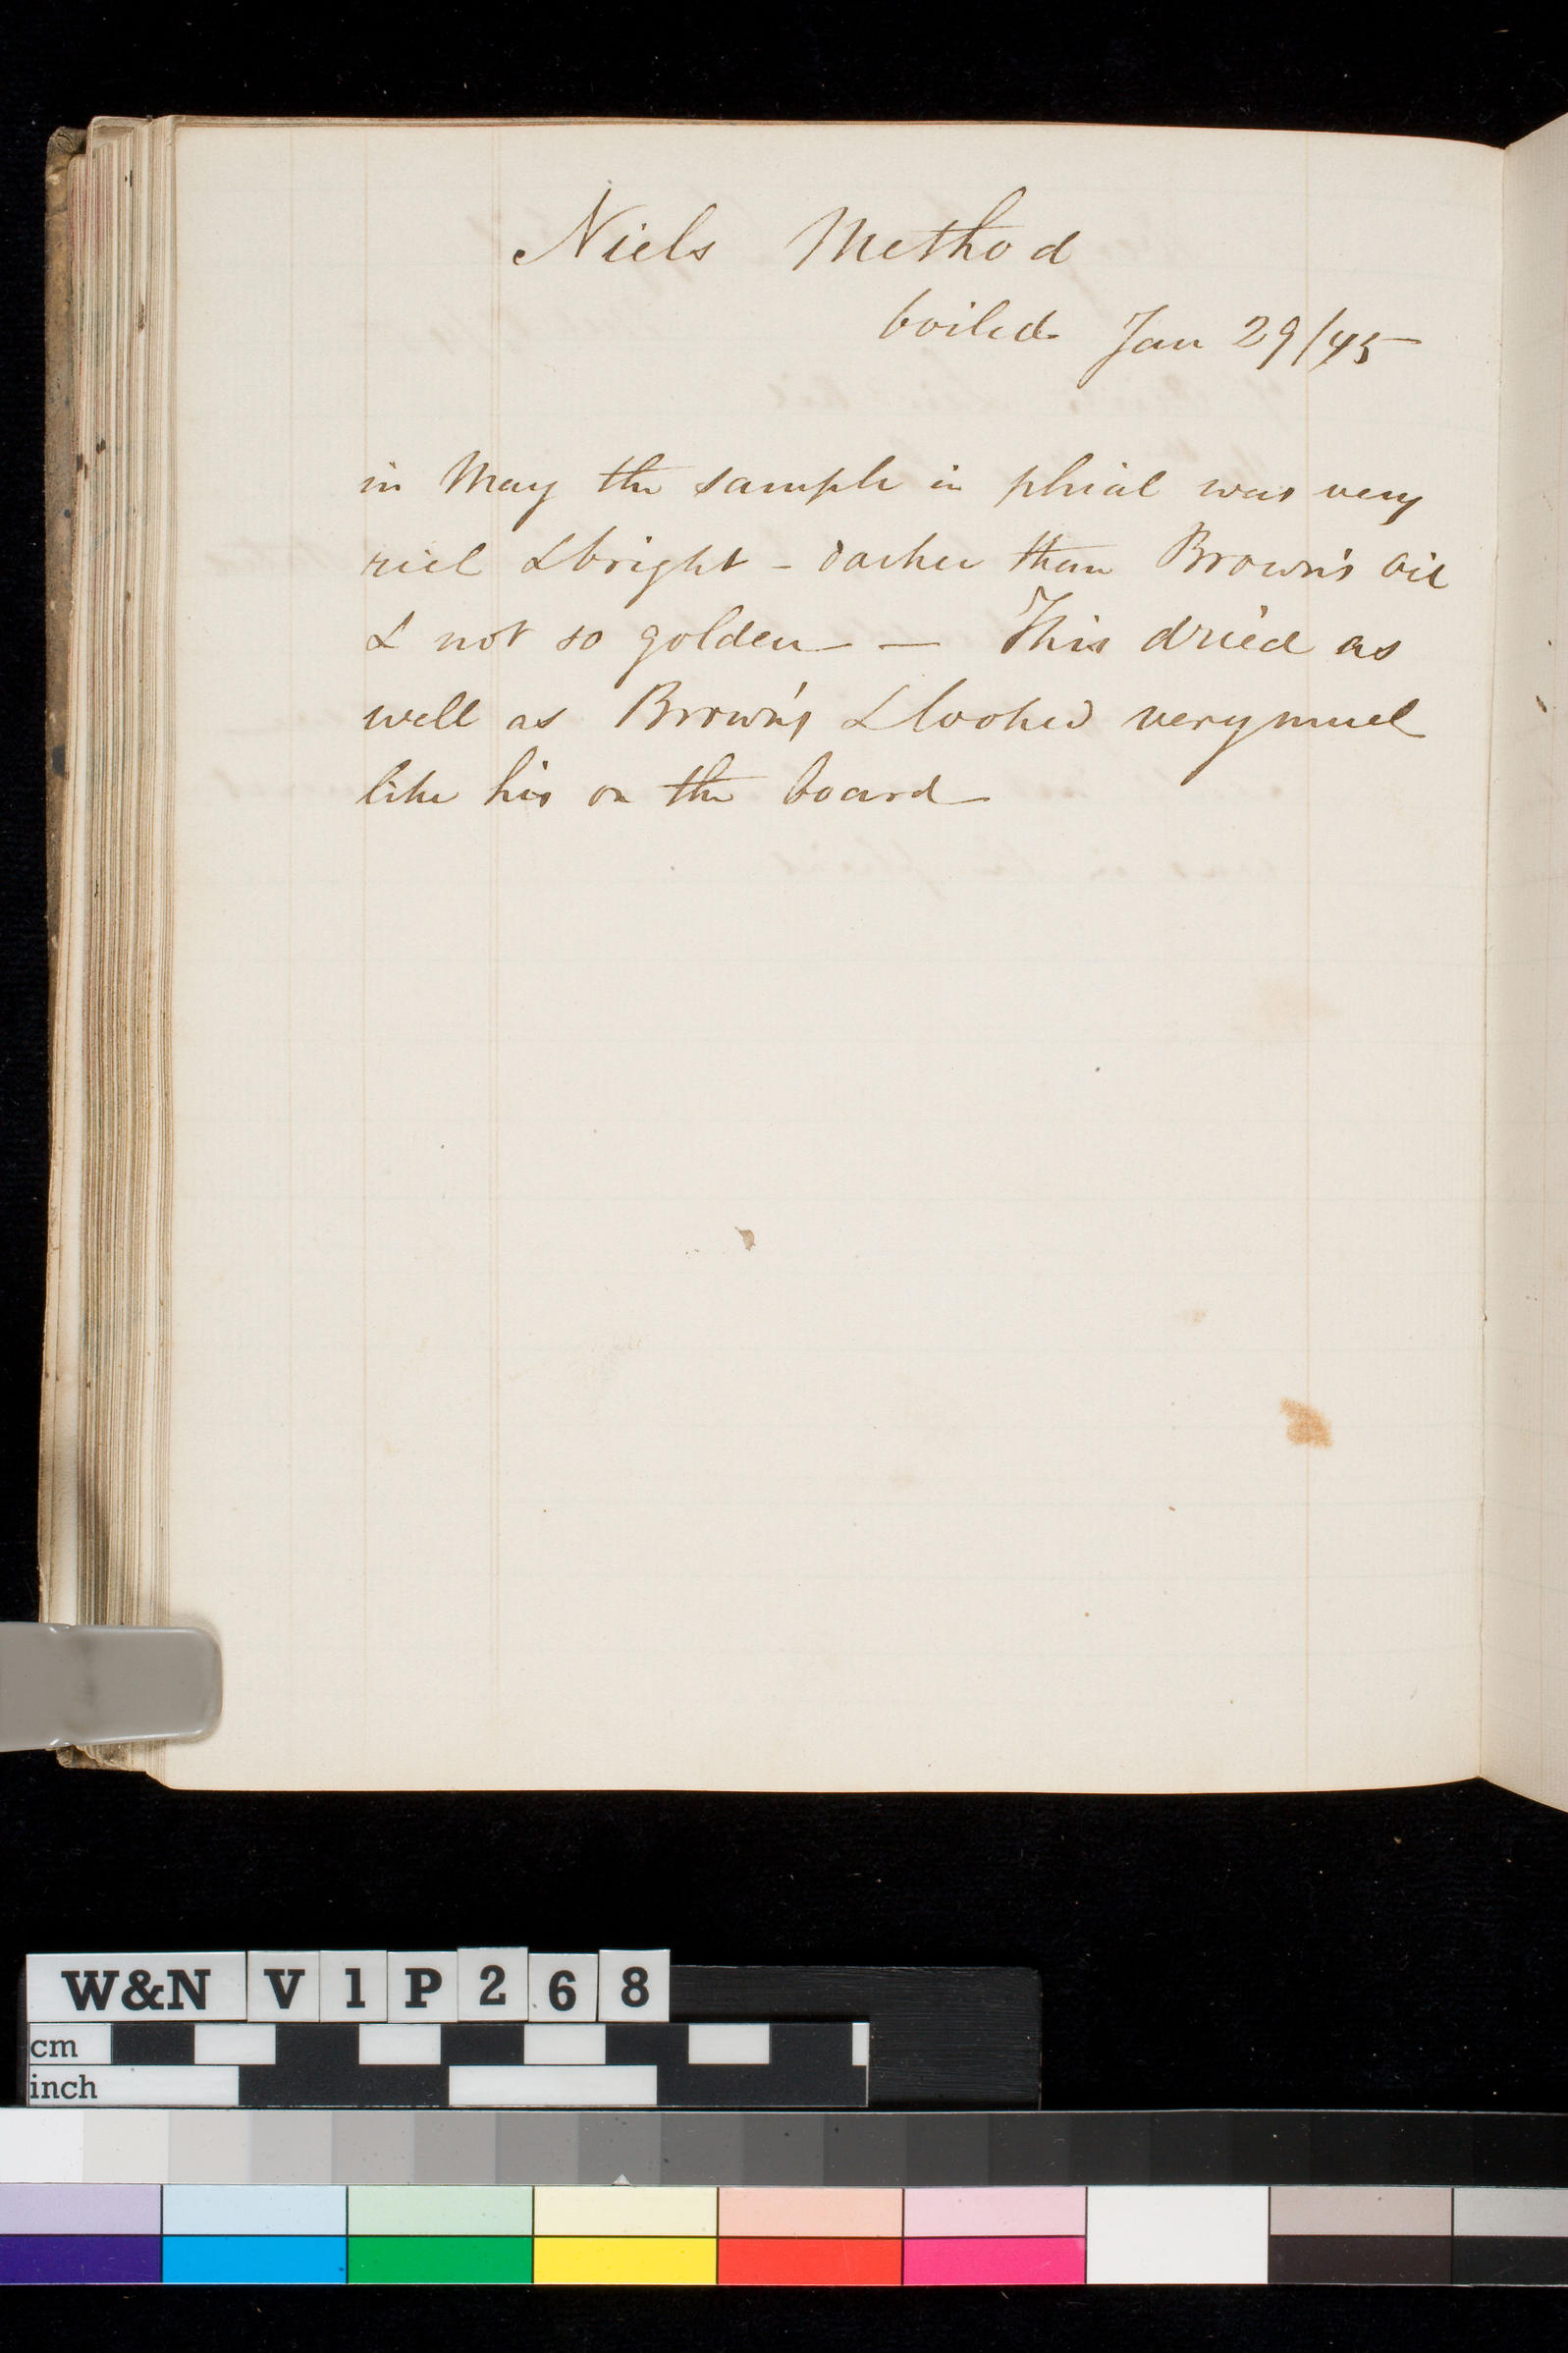 Niels Method
boiled Jan 29/45
in May the sample in phial was very
rich & bright - darker than Brown's oil
& not so golden — This dried as
well as Brown's & looked very much
like his on the board
W&N V1P268
cm
inch